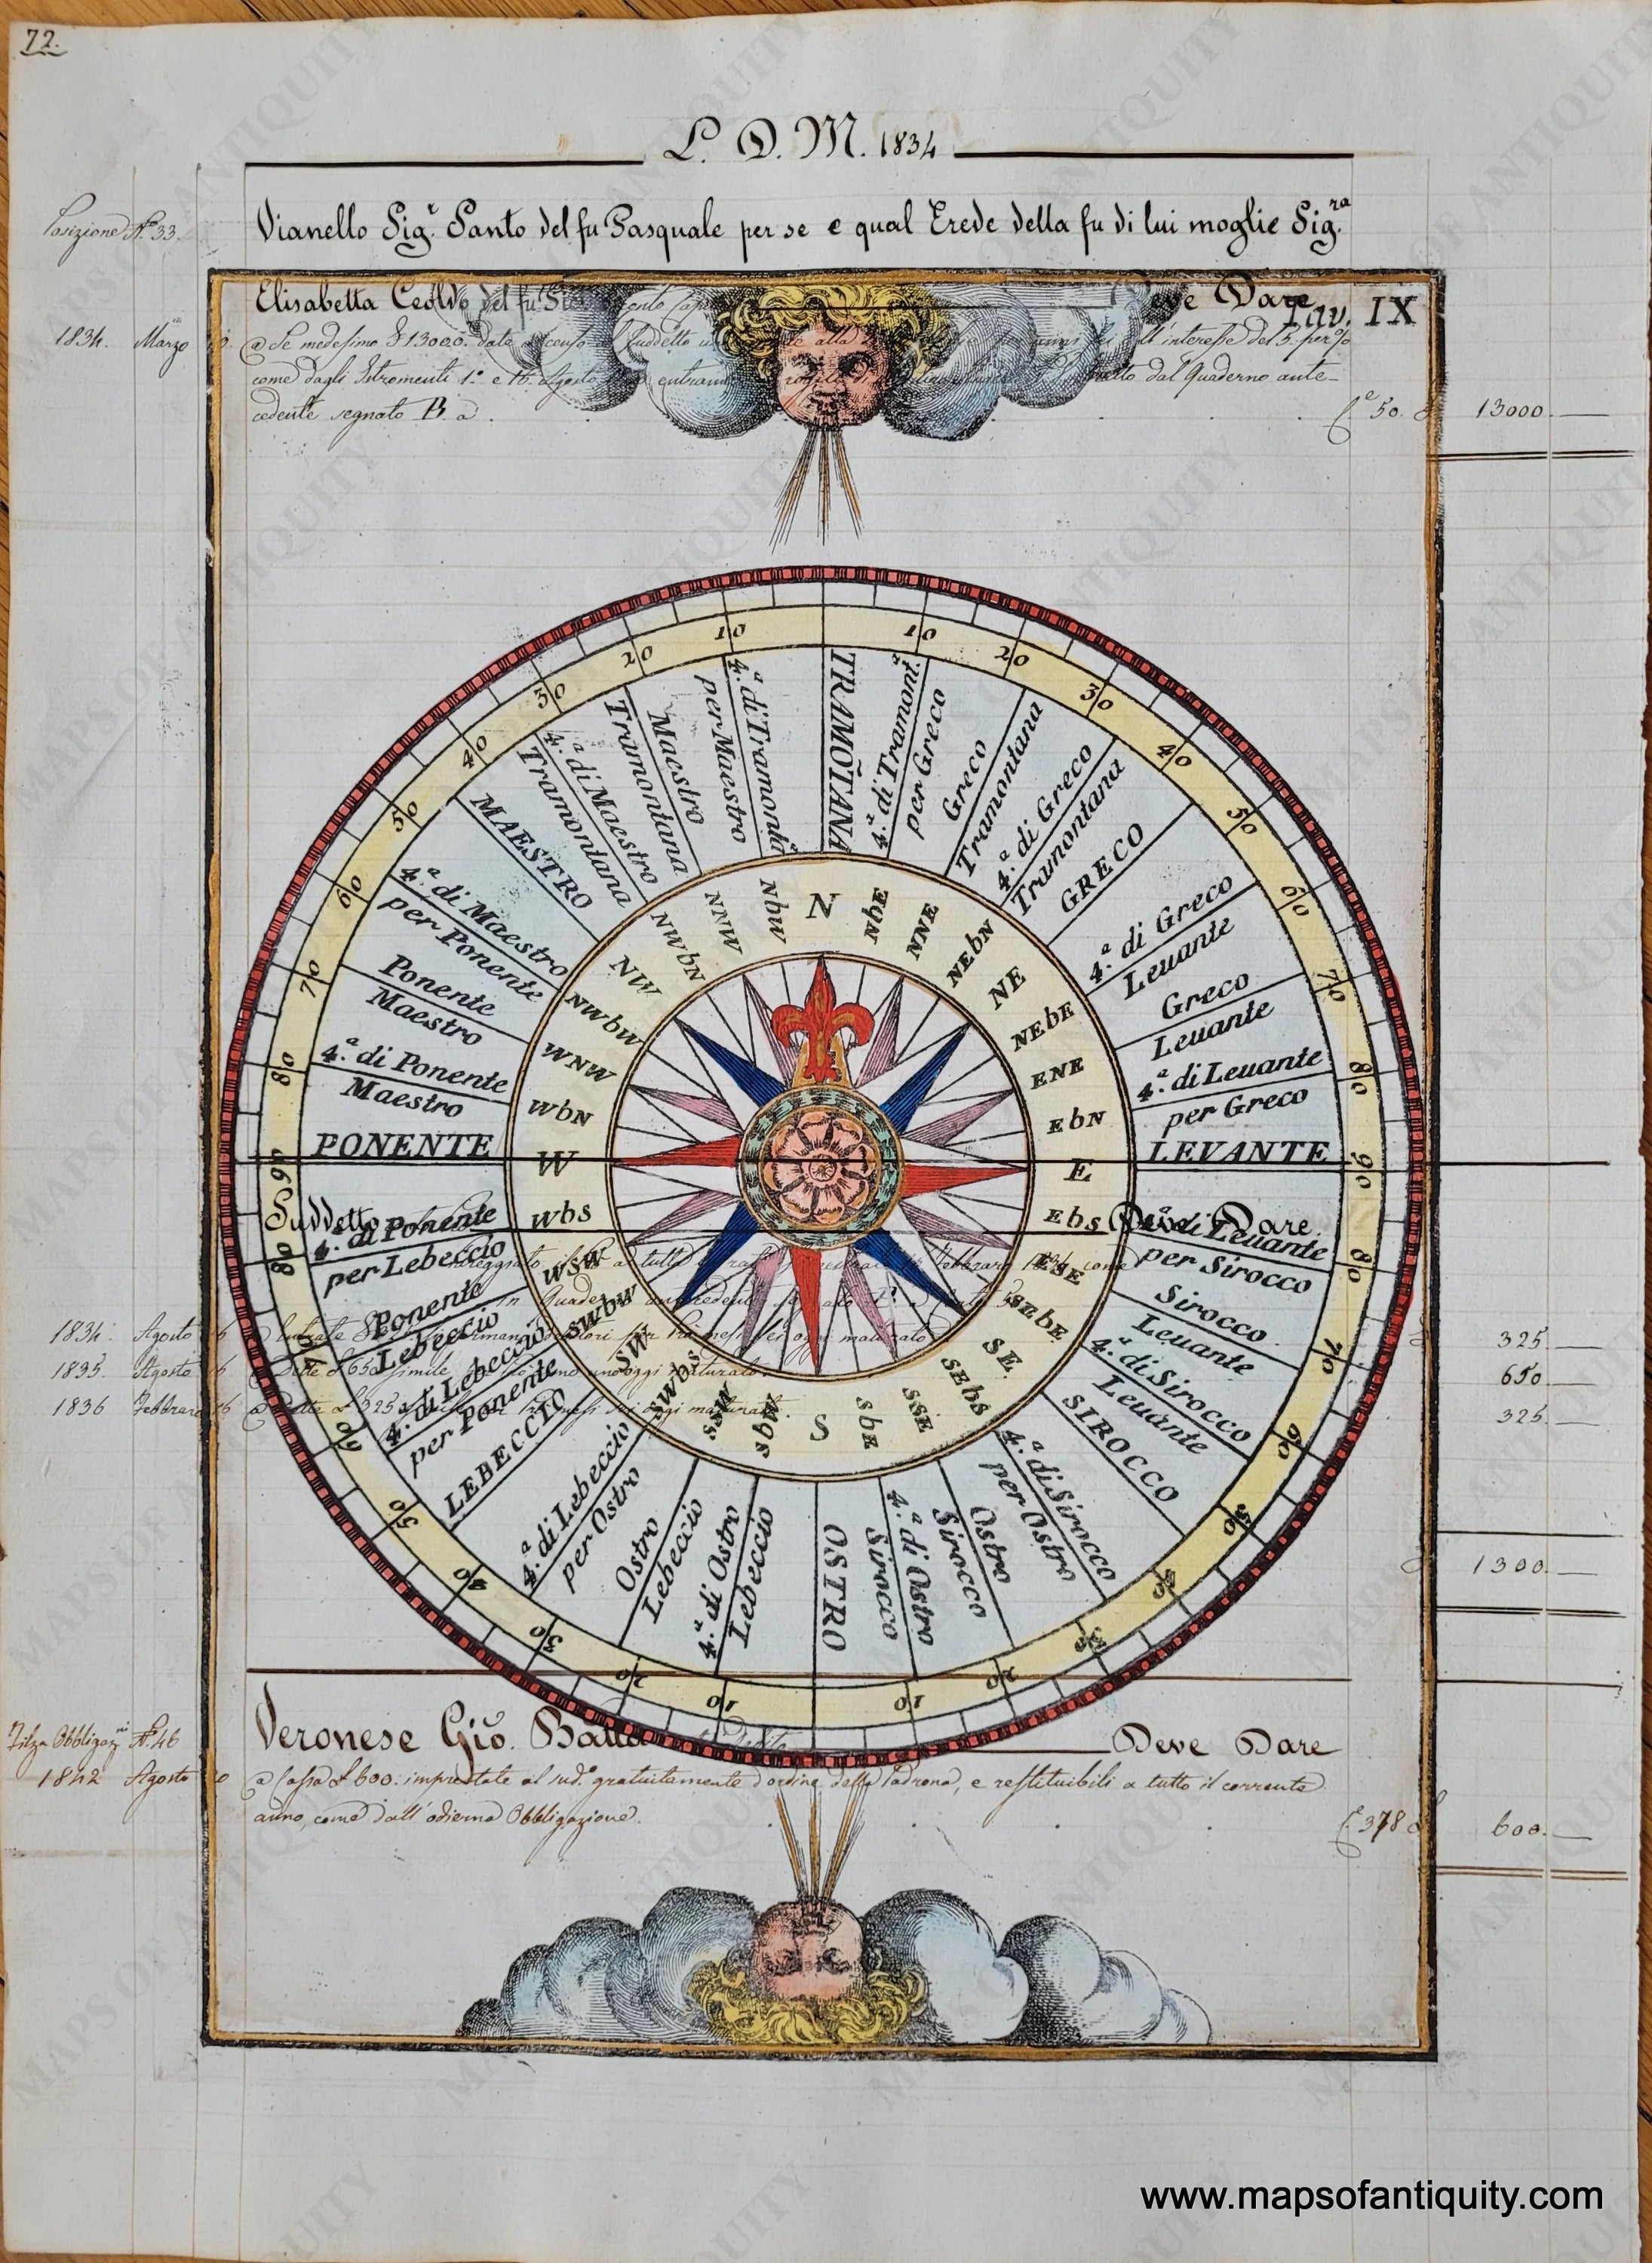 72.
L. D. M. 1834
Posizione N.º 33.
Vianello Sig.r Santo del fu Pasquale per se e qual Erede della fu di lui moglie Sig.ra
Elisabetta Ceoldo del fu Deve Dare
Tav. IX
1834. Marzo
a Se medesimo £ 13000. date a censo al suddetto l'interesse del 5. per %
come dagli Istromenti 1.º e 16. Agosto dal Quaderno ante-
cedente segnato B. a 50. 13000.
10 10
20 20
30 30
40 40
50 50
60 60
70 70
80 80
90 90
80 80
70
60 60
50 50
40
30 30
20 20
10 10
TRAMOTANA
4.a di Tramont.a
per Greco
Greco
Tramontana
4.a di Greco
Tramontana
GRECO
4.a di Greco
Leuante
Greco
Leuante
4.a di Leuante
per Greco
LEVANTE
4.a di Leuante
per Sirocco
Sirocco
Leuante
4.a di Sirocco
Leuante
SIROCCO
4.a di Sirocco
per Ostro
Ostro
Sirocco
4.a di Ostro
Sirocco
OSTRO
4.a di Ostro
Lebeccio
Ostro
Lebeccio
4.a di Lebeccio
per Ostro
LEBECCIO
4.a di Lebeccio
per Ponente
Ponente
Lebeccio
4. di Ponente
per Lebeccio
PONENTE
4.a di Ponente
Maestro
Ponente
Maestro
4.a di Maestro
per Ponente
MAESTRO
4.a di Maestro
Tramontana
Maestro
Tramontana
4.a di Tramont.a
per Maestro
N
NbE
NNE
NEbN
NE
NEbE
ENE
EbN
E
Ebs
ESE
SEbE
SE.
SEbs
SSE
sbE
S
sbW
SSW
SWbs
SW
SWbW
WSW
Wbs
W
WbN
WNW
NWbW
NW
NWbN
NNW
NbW
Suddetto Deve Dare.
1834. Agosto 16 325.
1835. Agosto 16 650
1836 Febbraro 16 325.
1300.
Filza Obbligazni N.º 46
Veronese Gio. Batta Deve Dare
1842 Agosto
a Cassa £ 600. imprestate al sud.º gratuitamente d'ordine della Padrona, e restituibili a tutto il corrente
anno, come dall' odierna Obbligazione. 378 600.
MAPS OF ANTIQUITY
www.mapsofantiquity.com